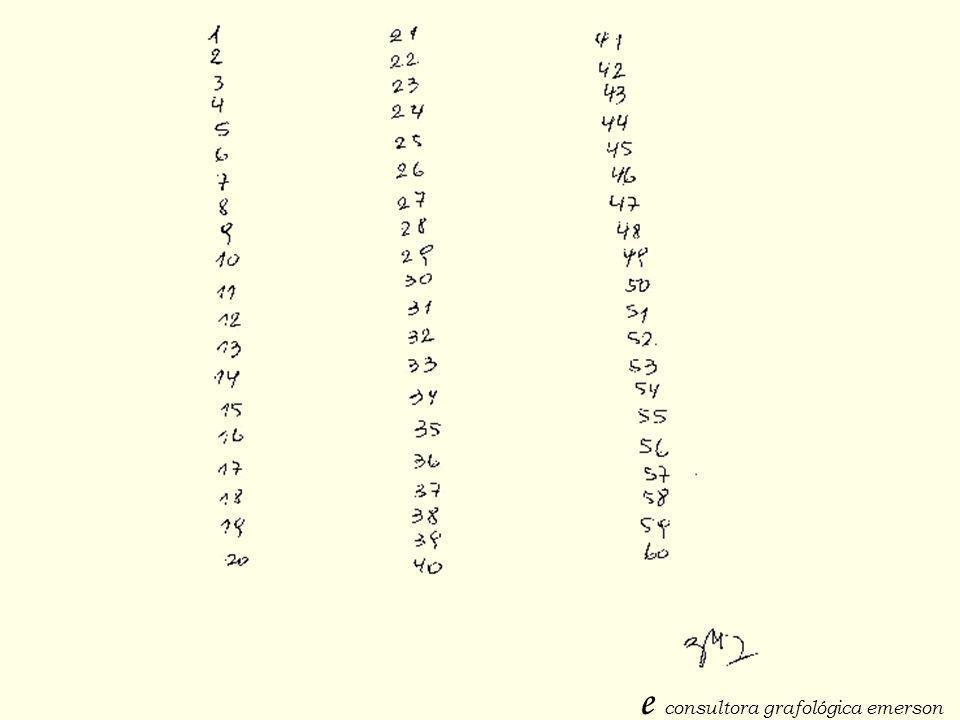 1
2
3
4
5
6
7
8
9
10
11
12
13
14
15
16
17
18
19
20
21
22
23
24
25
26
27
28
29
30
31
32
33
34
35
36
37
38
39
40
41
42
43
44
45
46
47
48
49
50
51
52
53
54
55
56
57
58
59
60
e consultora grafológica emerson